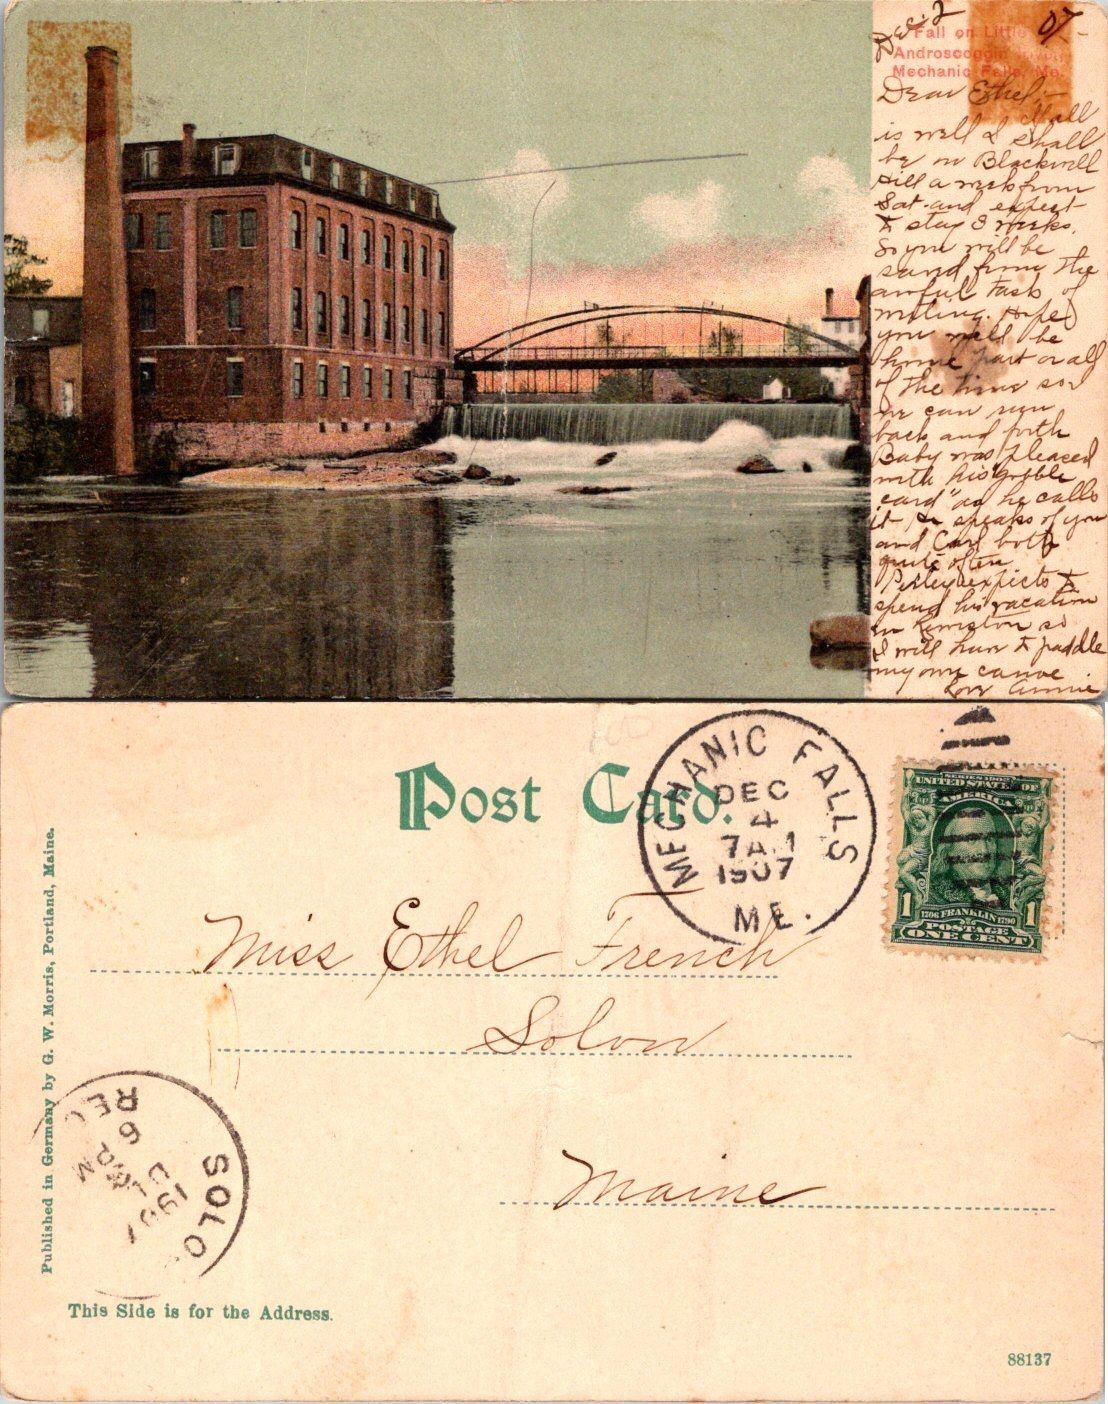 Dec 2 07-
Fall on Little
Androscoggin River,
Mechanic Falls, Me.
Dear Ethel;-
If all
is well I shall
be on Blackwell
Hill a week from
Sat. and expect
to stay 3 weeks.
So you will be
saved from the
awful task of
writing. Hope
you will be
home part or all
of the time so
we can run
back and forth
Baby was pleased
with his "
card" as he calls
it - He speaks of you
and Carl both
quite often
Perley expects to
spend his vacation
in Lewiston so
I will have to paddle
my own canoe
Love Annie
Post Card.
MECHANIC FALLS
DEC
4
7 AM
1907
ME.
SERIES 1902
UNITED STATES OF
AMERICA
1706 FRANKLIN 1790
1 POSTAGE 1
ONE CENT
Miss Ethel French
Solon
Maine
Published in Germany by G. W. Morris, Portland, Maine.
SOLO
REC
6 PM
1907
This Side is for the Address.
88137